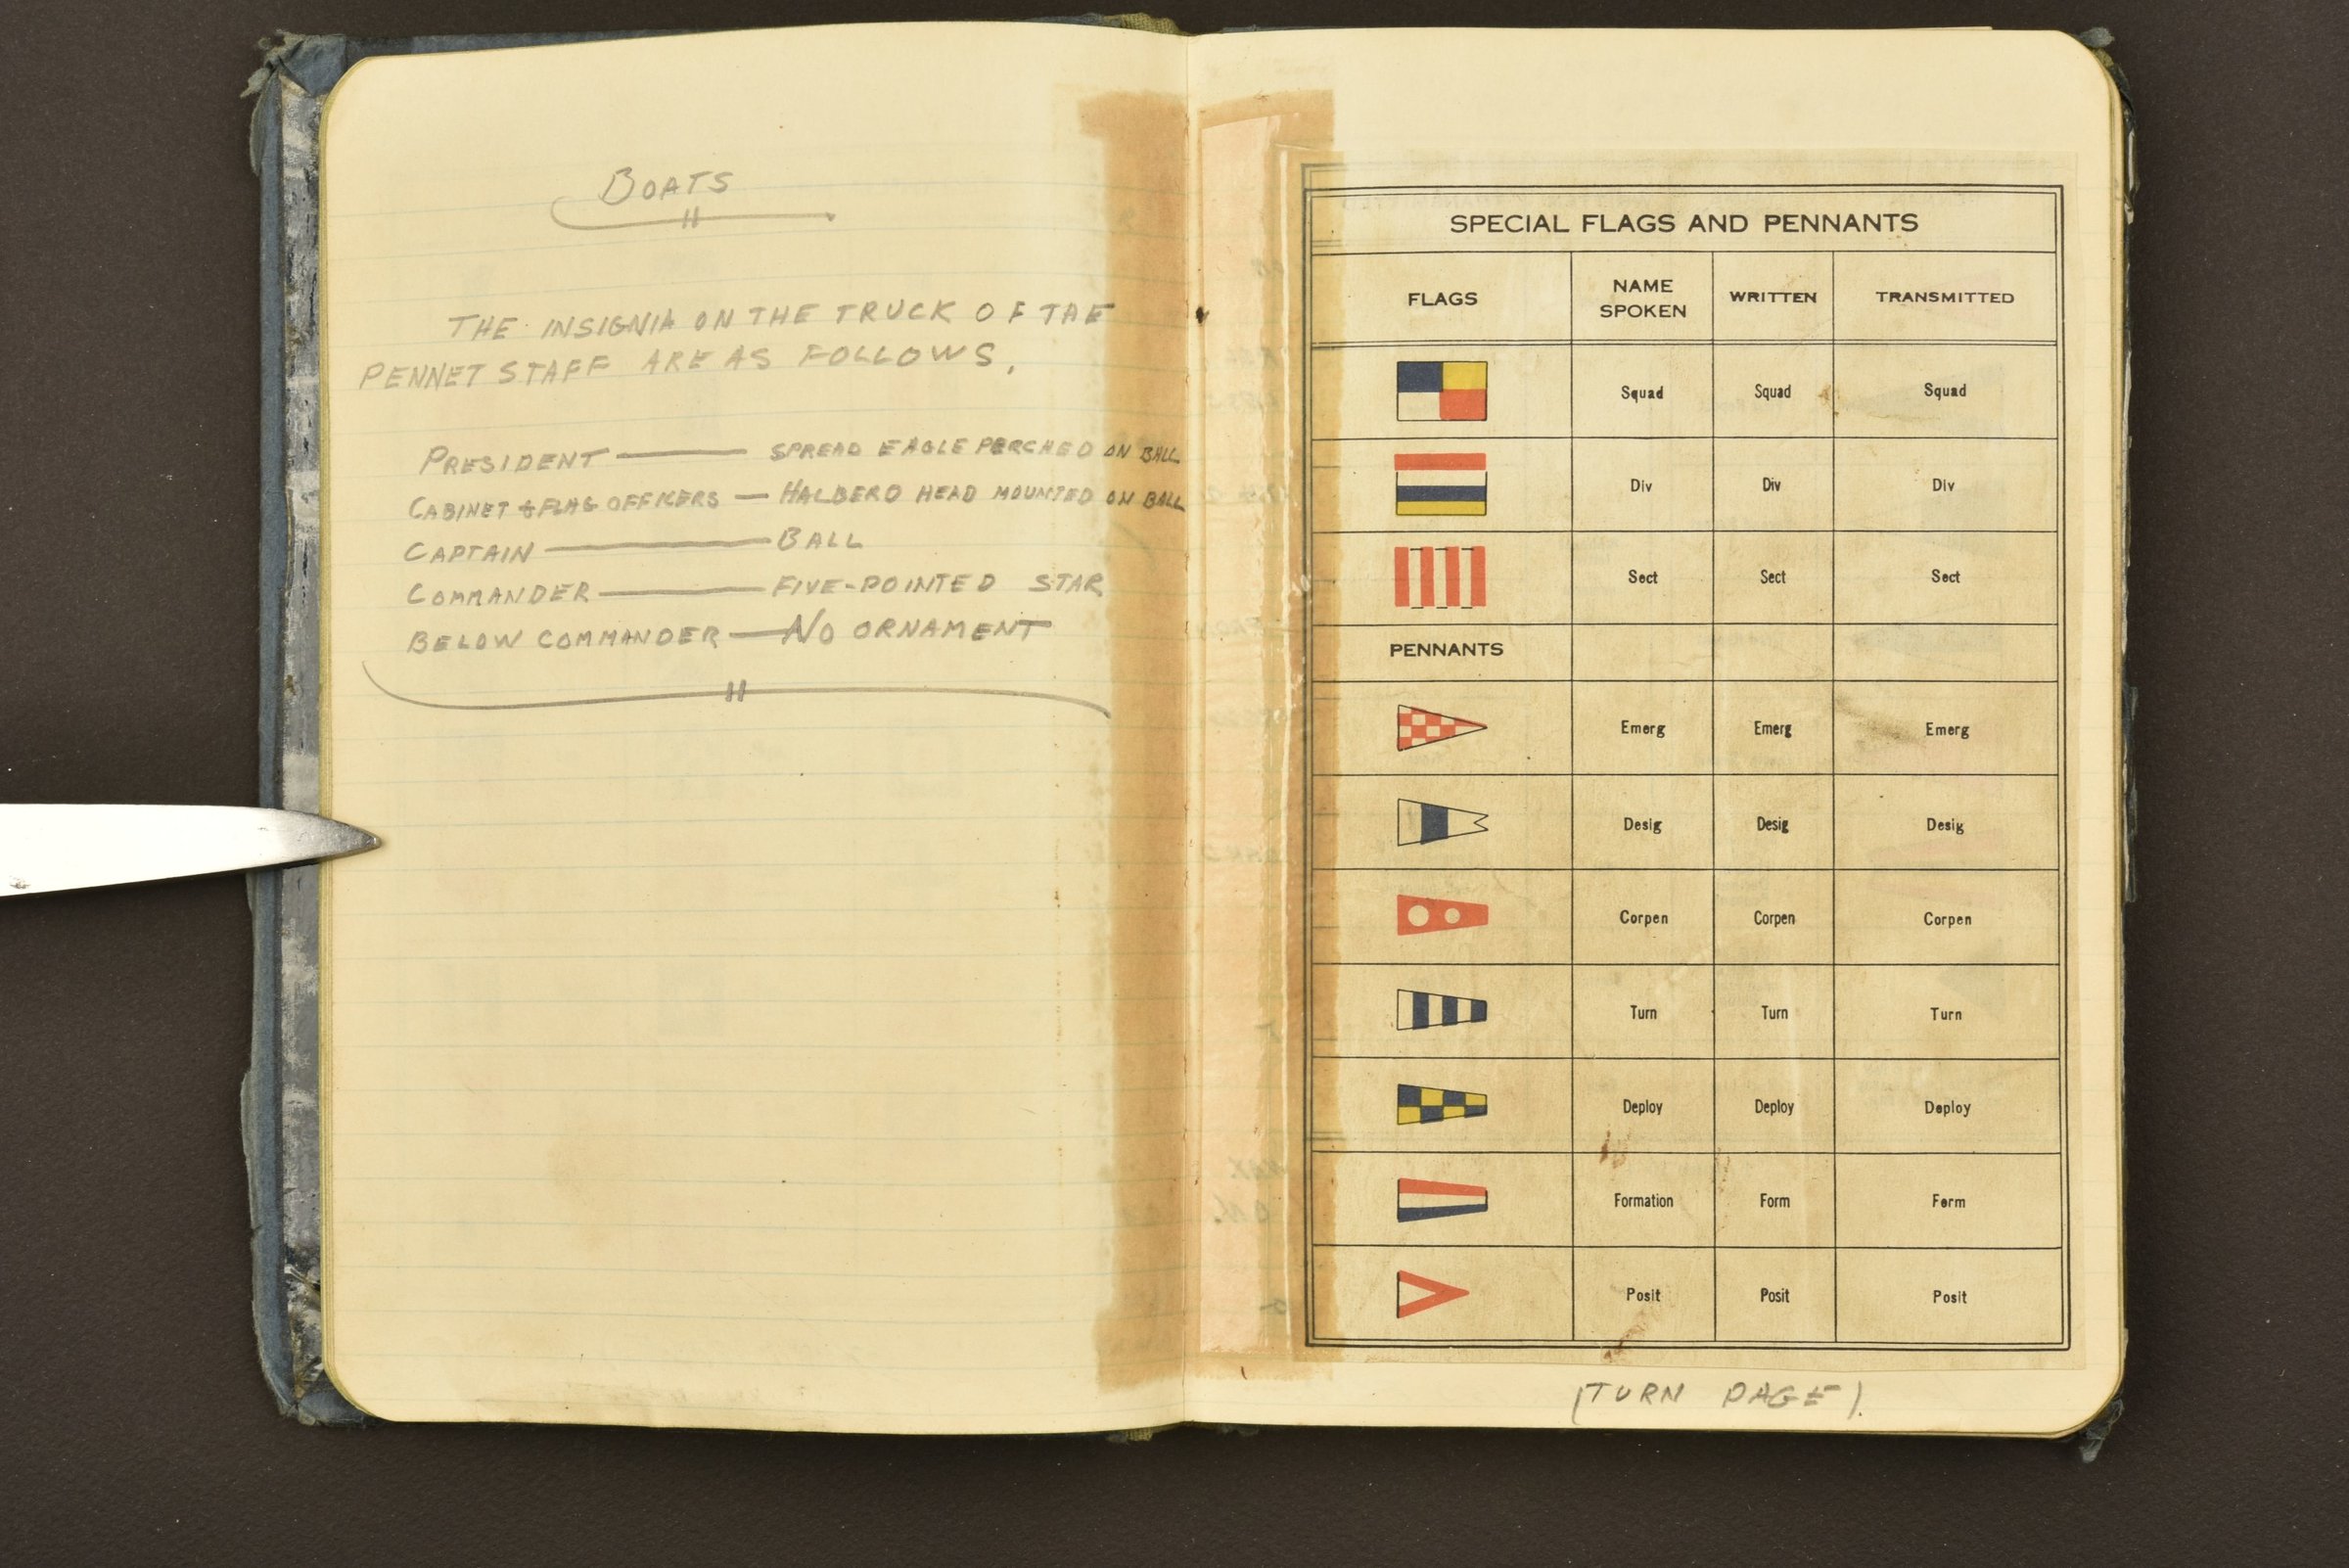 BOATS
THE INSIGNIA ON THE TRUCK OF THE
PENNET STAFF ARE AS FOLLOWS.
PRESIDENT — SPREAD EAGLE PERCHED ON BALL
CABINET & FLAG OFFICERS — HALBERD HEAD MOUNTED ON BALL
CAPTAIN — BALL
COMMANDER — FIVE-POINTED STAR
BELOW COMMANDER — NO ORNAMENT
SPECIAL FLAGS AND PENNANTS
FLAGS NAME SPOKEN WRITTEN TRANSMITTED
Squad Squad Squad
Div Div Div
Sect Sect Sect
PENNANTS
Emerg Emerg Emerg
Desig Desig Desig
Corpen Corpen Corpen
Turn Turn Turn
Deploy Deploy Deploy
Formation Form Form
Posit Posit Posit
(TURN PAGE).